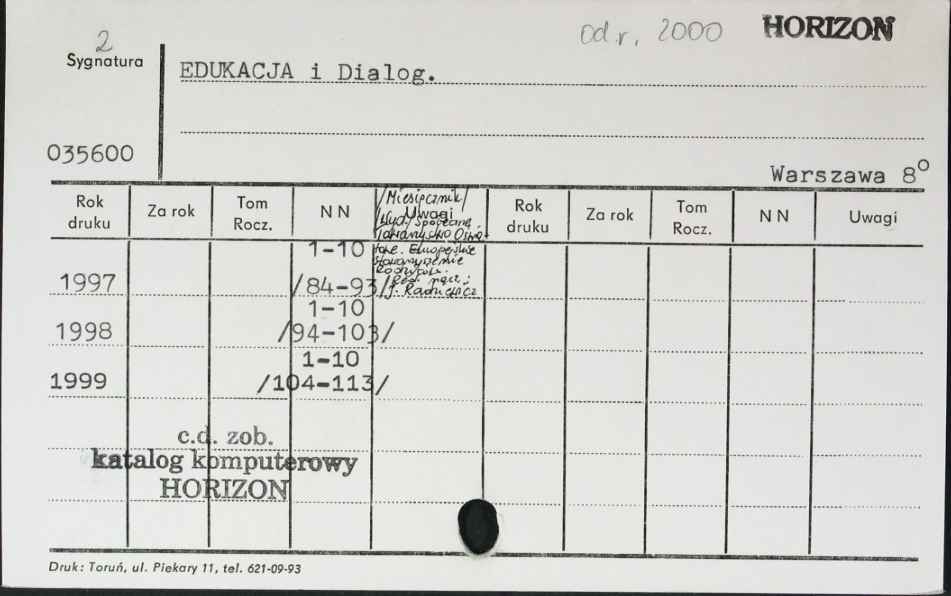 2
od r. 2000 HORIZON
Sygnatura
EDUKACJA i Dialog.
035600
Warszawa 8°
Rok druku Za rok Tom Rocz. N N Uwagi Rok druku Za rok Tom Rocz. N N Uwagi
/Miesięcznik/
1-10
1997 /84-93/
1-10
1998 /94-103/
1-10
1999 /104-113/
c.d. zob.
katalog komputerowy
HORIZON
Druk: Toruń, ul. Piekary 11, tel. 621-09-93